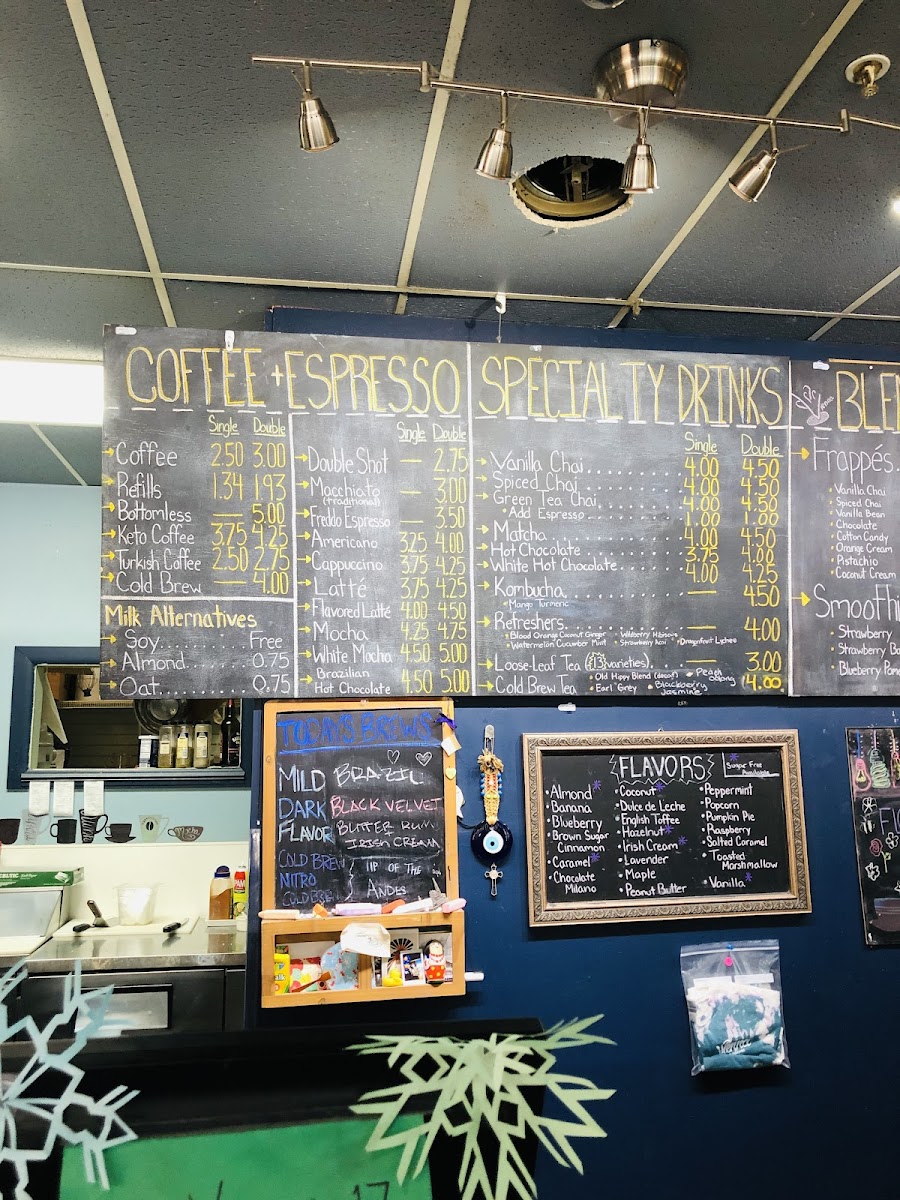 COFFEE + ESPRESSO
Single Double
Coffee 2.50 3.00
Refills 1.34 1.93
Bottomless — 5.00
Keto Coffee 3.75 4.25
Turkish Coffee 2.50 2.75
Cold Brew — 4.00
Milk Alternatives
Soy...... Free
Almond..... 0.75
Oat....... 0.75
Single Double
Double Shot — 2.75
Macchiato — 3.00
(traditional)
Freddo Espresso — 3.50
Americano 3.25 4.00
Cappuccino 3.75 4.25
Latté 3.75 4.25
Flavored Latté 4.00 4.50
Mocha 4.25 4.75
White Mocha 4.50 5.00
Brazilian
Hot Chocolate 4.50 5.00
SPECIALTY DRINKS
Single Double
Vanilla Chai 4.00 4.50
Spiced Chai 4.00 4.50
Green Tea Chai 4.00 4.50
Add Espresso 1.00 1.00
Matcha 4.00 4.50
Hot Chocolate 3.75 4.00
White Hot Chocolate 4.00 4.25
Kombucha — 4.50
Mango Turmeric
Refreshers — 4.00
Blood Orange Coconut Ginger Wildberry Hibiscus
Watermelon Cucumber Mint Strawberry Acai Dragonfruit Lychee
Loose-Leaf Tea (13 varieties) — 3.00
Cold Brew Tea Old Hippy Blend (decaf) Peach Oolong 4.00
Earl Grey Blackberry Jasmine
BLEN
Frappés.
Vanilla Chai
Spiced Chai
Vanilla Bean
Chocolate
Cotton Candy
Orange Cream
Pistachio
Coconut Cream
Smoothi
Strawberry
Strawberry Ba
Blueberry Pome
TODAY'S BREWS
MILD BRAZIL
DARK BLACK VELVET
FLAVOR BUTTER RUM
IRISH CREAM
COLD BREW
NITRO
COLD BREW
} LIP OF THE
ANDES
FLAVORS
Sugar Free
Available
Almond
Banana
Blueberry
Brown Sugar
Cinnamon
Caramel
Chocolate
Milano
Coconut
Dulce de Leche
English Toffee
Hazelnut
Irish Cream
Lavender
Maple
Peanut Butter
Peppermint
Popcorn
Pumpkin Pie
Raspberry
Salted Caramel
Toasted
Marshmallow
Vanilla
17